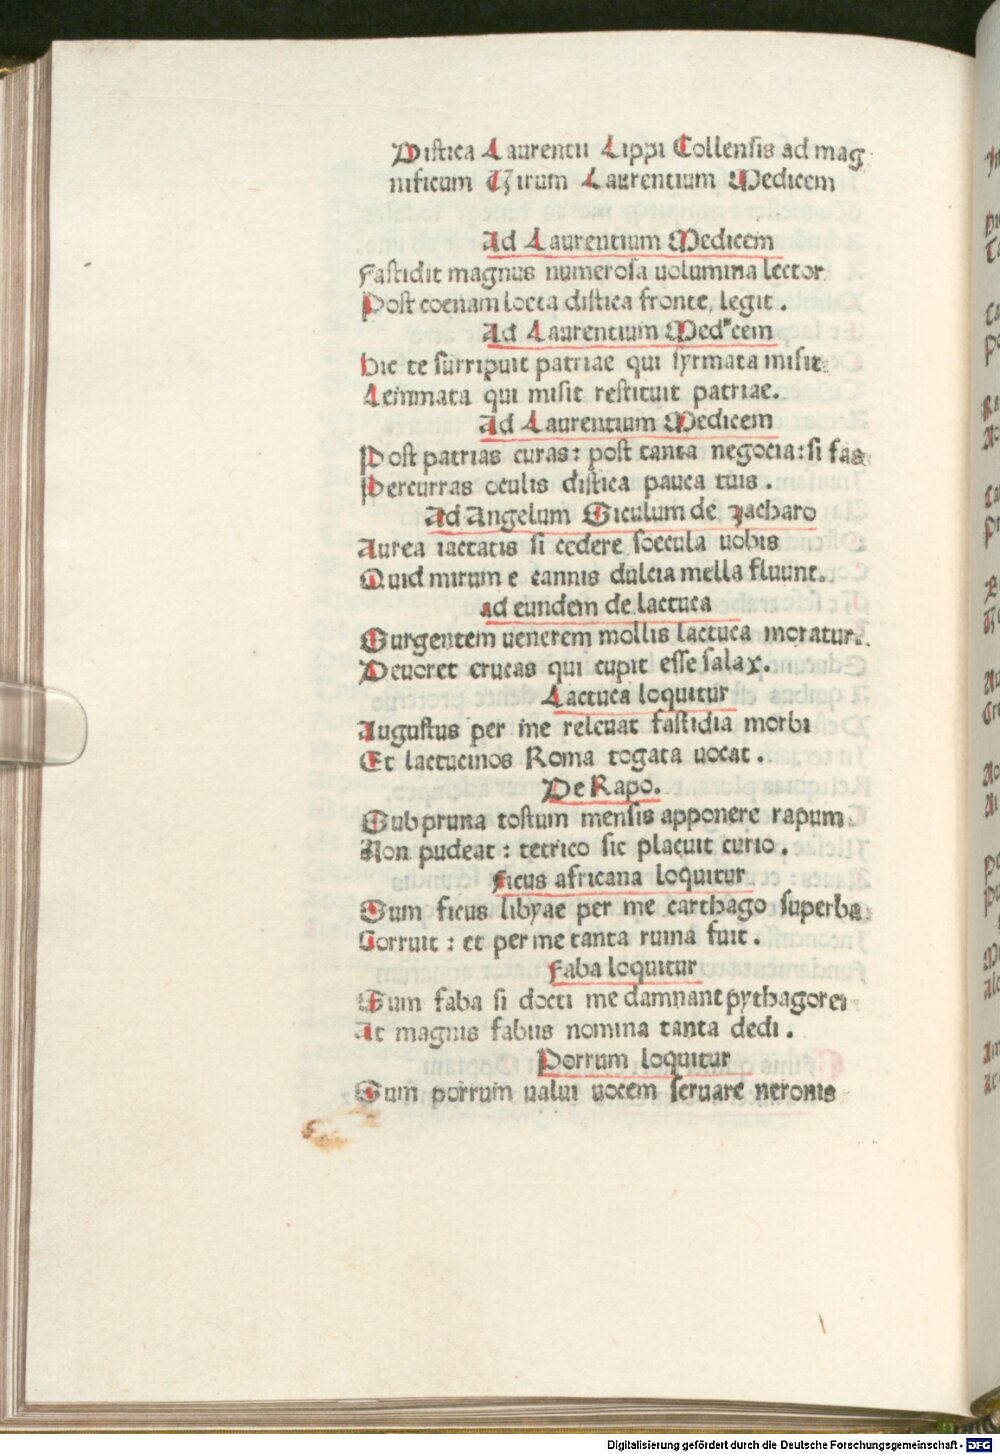 Distica Laurentii Lippi Collensis ad mag
nificum Virum Laurentium Medicem
Ad Laurentium Medicem
Fastidit magnus numerosa uolumina lector
Post coenam locta distica fronte, legit.
Ad Laurentium Medicem
Hic te surripuit patriae qui syrmata misit:
Lemmata qui misit restituit patriae.
Ad Laurentium Medicem
Post patrias curas: post tanta negocia: si fas
Percurras oculis distica pauca tuis.
Ad Angelum Siculum de zacharo
Aurea iactatis si cedere soecula uobis
Quid mirum e cannis dulcia mella fluunt.
ad eundem de lactuca
Surgentem uenerem mollis lactuca moratur.
Deuoret erucas qui cupit esse salax.
Lactuca loquitur
Augustus per me releuat fastidia morbi
Et lactucinos Roma togata uocat.
De Rapo.
Sub pruna tostum mensis apponere rapum
Non pudeat: tetrico sic placuit curio.
Ficus africana loquitur
Sum ficus libyae per me carthago superba:
Corruit: et per me tanta ruina fuit.
Faba loquitur
Sum faba si docti me damnant pythagorei
At magnis fabiis nomina tanta dedi.
Porrum loquitur
Sum porrum ualui uocem seruare neronis
Digitalisierung gefördert durch die Deutsche Forschungsgemeinschaft - DFG